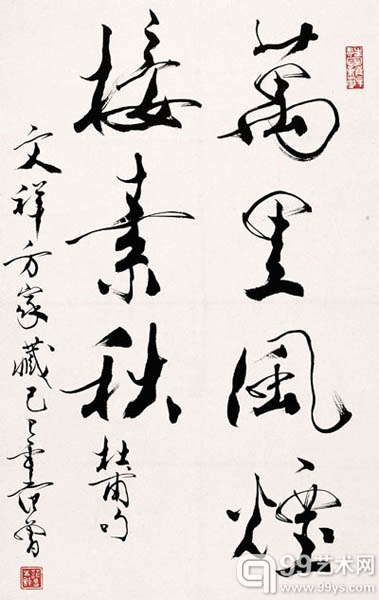 萬里風煙
接素秋 杜甫句
文祥方家藏 己巳年 范曾
99艺术网
www.99ys.com